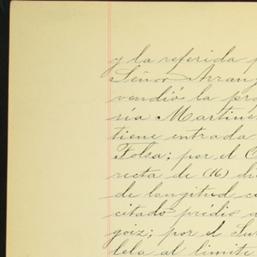 y la referida
Señor Aran
vendió la pro
sía Martine
tiene entrada
Folsa; por el C
recta de (16) di
de longitud co
citado predio a
goiz; por el Su
lela al límite